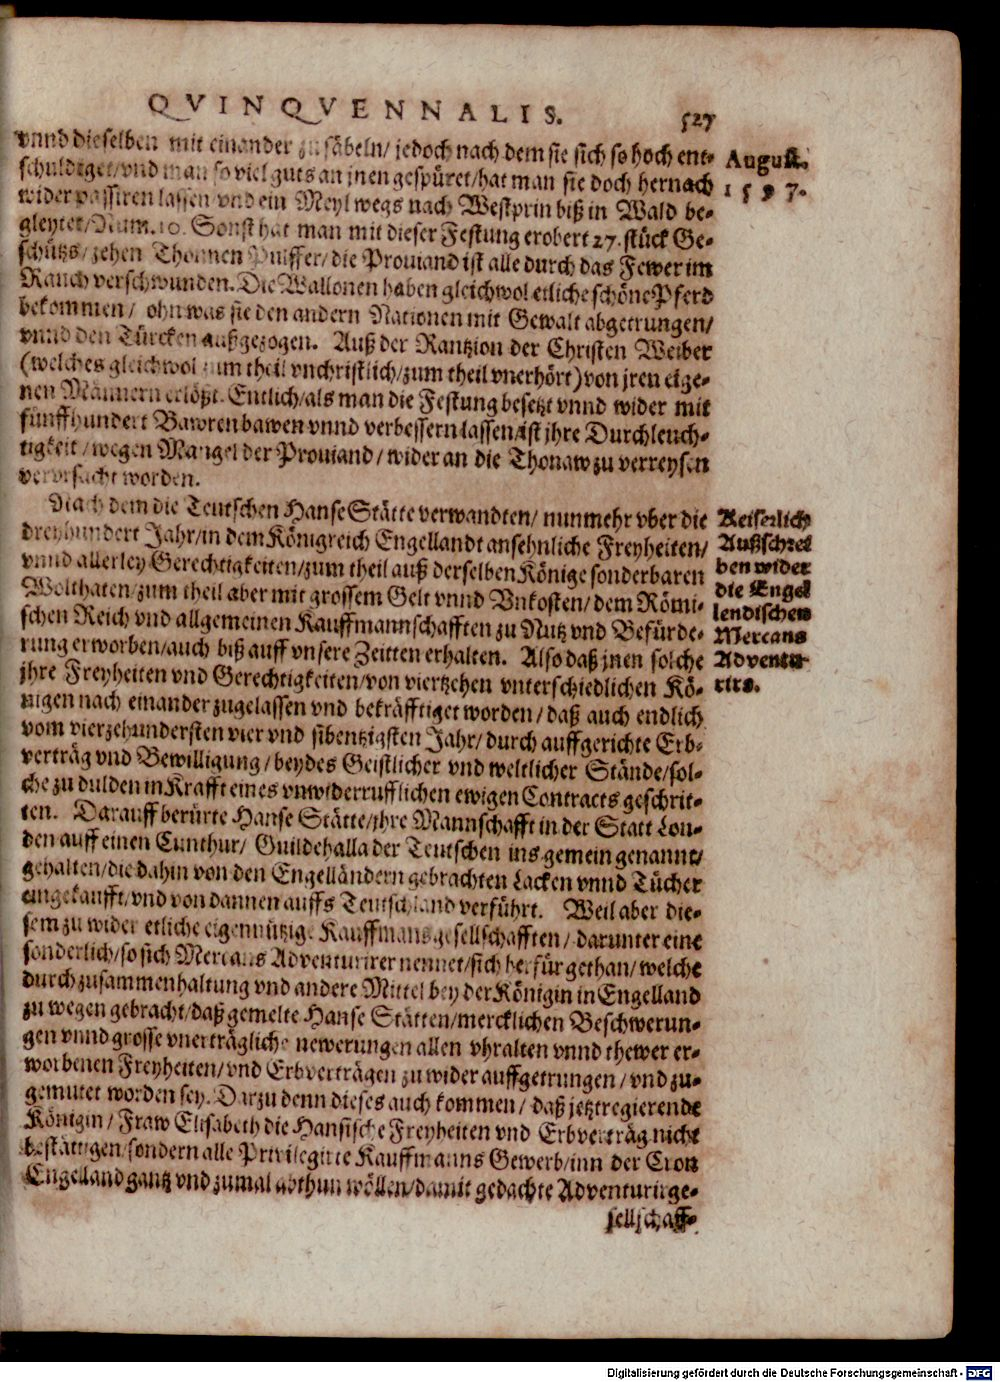 QVINQVENNALIS. 527
vnnd dieselben mit einander zu säbeln/ jedoch nach dem sie sich so hoch ent-
schuldiget/vnd man so viel guts an jnen gespüret/hat man sie doch hernach
wider passiren lassen vnd ein Meyl wegs nach Westprin biß in Wald be-
gleytet/Num. 10. Sonst hat man mit dieser Festung erobert 27. stück Ge-
schütz/ zehen Thonnen Pulffer/ die Prouiand ist alle durch das Fewer im
Rauch verschwunden. Die Wallonen haben gleichwol etliche schöne Pferd
bekommen/ ohn was sie den andern Nationen mit Gewalt abgetrungen/
vnnd den Türcken außgezogen. Auß der Rantzion der Christen Weiber
(welches gleichwol zum theil vnchristlich/zum theil vnerhört) von jren eige-
nen Männern erlößt. Entlich/als man die Festung besetzt vnnd wider mit
fünffhundert Bawren bawen vnnd verbessern lassen/ist jhre Durchleuch-
tigkeit/wegen Mangel der Prouiand/ wider an die Thonaw zu verreysen
verursacht worden.
August.
1597.
Nach dem die Teutschen Hanse Stätte verwandten/ nunmehr vber die
dreyhundert Jahr/in dem Königreich Engellandt ansehnliche Freyheiten/
vnnd allerley Gerechtigkeiten/zum theil auß derselben Könige sonderbaren
Wolthaten/zum theil aber mit grossem Gelt vnnd Vnkosten/dem Römi-
schen Reich vnd allgemeinen Kauffmannschafften zu Nutz vnd Befürde-
rung erworben/auch biß auff vnsere Zeitten erhalten. Also daß jnen solche
jhre Freyheiten vnd Gerechtigkeiten/von viertzehen vnterschiedlichen Kö-
nigen nach einander zugelassen vnd bekräfftiget worden/daß auch endlich
vom vierzehundersten vier vnd sibentzigsten Jahr/durch auffgerichte Erb-
verträg vnd Bewilligung/beydes Geistlicher vnd weltlicher Stände/sol-
che zu dulden in Krafft eines vnwiderrufflichen ewigen Contracts geschrit-
ten. Darauff berürte Hanse Stätte/jhre Mannschafft in der Statt Lon-
den auff einen Cunthur/ Guildehalla der Teutschen ins gemein genannt/
gehalten/die dahin von den Engelländern gebrachten Lacken vnnd Tücher
eingekaufft/vnd von dannen auffs Teutschland verführt. Weil aber die-
sem zu wider etliche eigennützige Kauffmansgesellschafften/ darunter eine
sonderlich/so sich Mercans Adventurirer nennet/sich herfür gethan/welche
durch zusammenhaltung vnd andere Mittel bey der Königin in Engelland
zu wegen gebracht/daß gemelte Hanse Stätten/mercklichen Beschwerun-
gen vnnd grosse vnerträgliche newerungen allen vhralten vnnd thewer er-
worbenen Freyheiten/vnd Erbverträgen zu wider auffgetrungen/vnd zu-
gemutet worden sey. Darzu denn dieses auch kommen/ daß jetztregierende
Königin/ Fraw Elisabeth die Hansische Freyheiten vnd Erbverträg nicht
bestättigen/sondern alle Privilegirte Kauffmanns Gewerb/inn der Cron
Engelland gantz vnd zumal abthun wöllen/damit gedachte Adventurirge-
sellschaff-
Keiserlich
Außschrei
ben wider
die Engel
lendischen
Mercans
Adventu-
rirs.
Digitalisierung gefördert durch die Deutsche Forschungsgemeinschaft - DFG